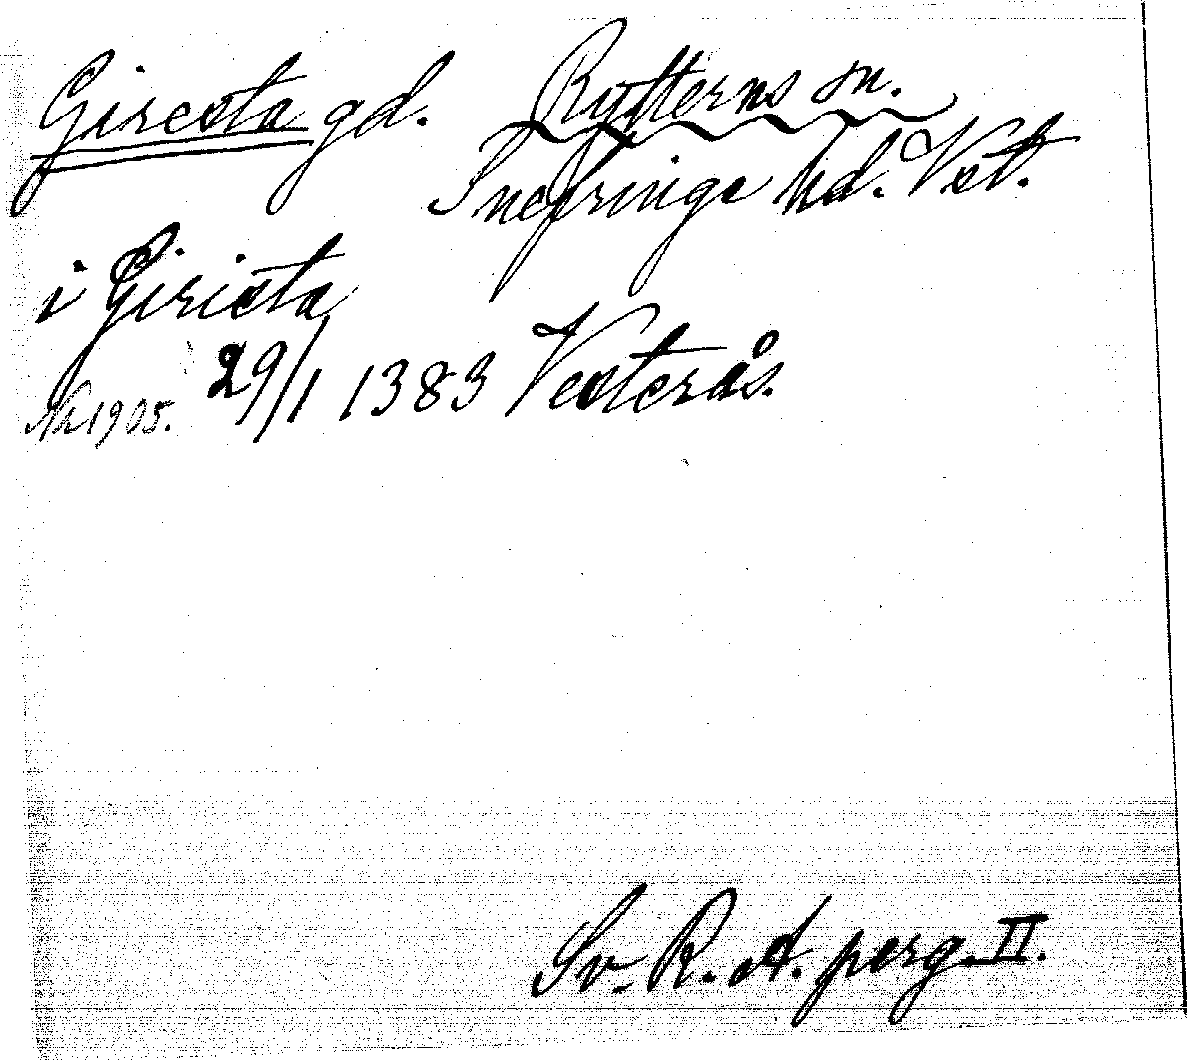 Giresta gd. Rytterns sn.
Snefringe hd. Vstl.
i Girista
29/1 1383 Vesterås.
Nr 1905.
Sv. R. A. perg. II.